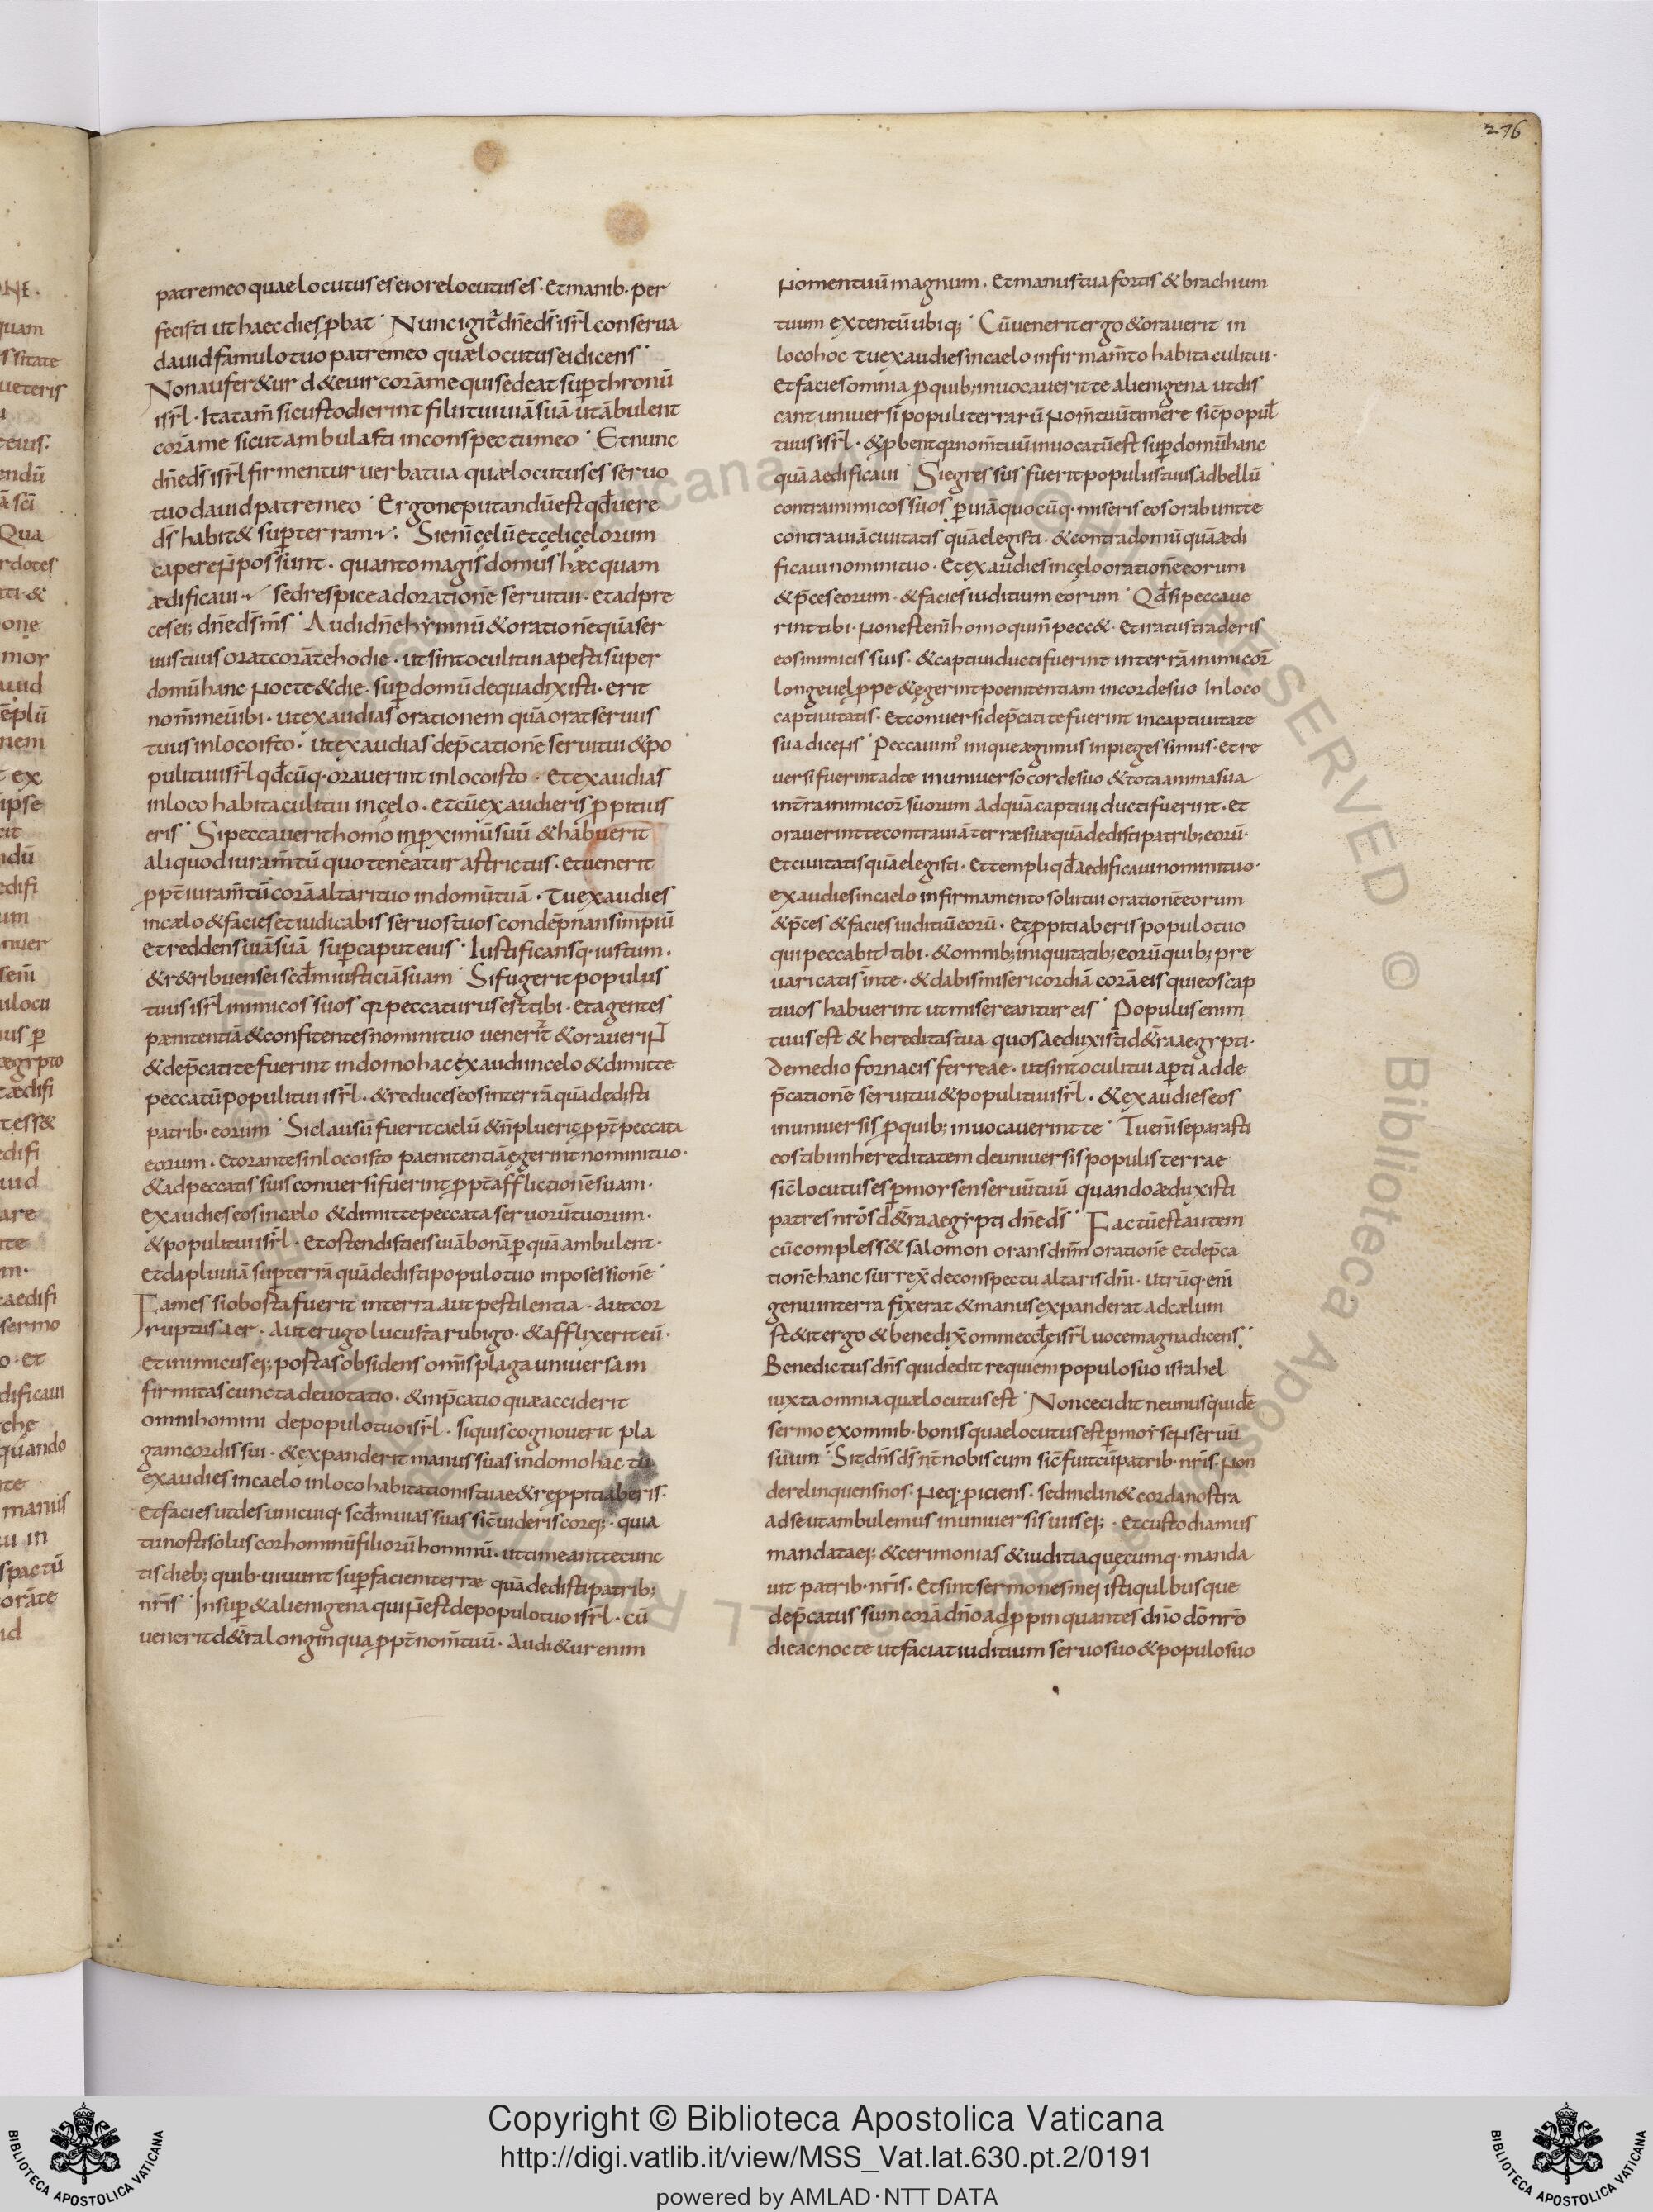 276
patremeo quae locutus es ei ore locutus es · Et manib · per
fecisti ut haec dies p̱bat · Nunc igit̄ dn̄e ds̄ isrl̄ conserua
dauid famulo tuo patre meo quæ locutus ei dicens ·
Non aufer&ur d& e uir corā me qui sedeat sup̱ thronū
isrl̄ · Ita tam̄ si custodierint filii tui uiā suā ut ābulent
corā me sicut ambulasti in conspectu meo · Et nunc
dn̄e ds̄ isrl̄ firmentur uerba tua quæ locutus es seruo
tuo dauid patre meo · Ergone putandū est qd̄ uere
ds̄ habit& sup̱ terram · Si eni̅ cęlū et cęli cęlorum
capere n̄ possunt · quanto magis domus hæc quam
ædificaui · sed respice ad oration̄e serui tui · et ad pre
ces ei; dn̄e ds̄ m̄s · Audi dn̄e hymnū & oration̄e quā ser
uus tuus orat corā te hodie · ut sint oculi tui apesti super
domū hanc nocte & die · sup̱ domū de qua dixisti · erit
nom̄ meū ibi · ut exaudias orationem quā orat seruus
tuus in loco isto · ut exaudias dep̄cation̄e serui tui & po
puli tui isrl̄ qd̄cūq · orauerint in loco isto · Et exaudias
in loco habitaculi tui in cęlo · et cū exaudieris p̱pitius
eris · Si peccauerit homo in p̱ximū suū & habuerit
aliquod iuram̄tū quo teneatur astrictus · et uenerit
p̱pt̄ iuram̄tū corā altari tuo in domū tuā · Tu exaudies
in cælo & facies et iudicabis seruos tuos condēpnans impiū
et reddens uiā suā sup̱ caput eius · Iustificansq · iustum ·
& r&ribuens ei scd̄m iusticiā suam · Si fugerit populus
tuus isrl̄ inimicos suos qr peccaturus est tibi · et agentes
pænitentiā & confitentes nomini tuo uenerit̄ & orauerint
& dep̄cati te fuerint in domo hac exaudi in celo & dimitte
peccatū populi tui isrl̄ · & reduces eos in terrā quā dedisti
patrib · eorum · Si clausū fuerit caelū & n̄ pluerit p̱pt̄ peccata
eorum · et orantes in loco isto paenitentiā ęgerint nomini tuo ·
& ad peccatis suis conuersi fuerint p̱pt̄ affliction̄e suam ·
exaudies eos in cælo & dimitte peccata seruorū tuorum ·
& populi tui isrl̄ · et ostendisti eis uiā bonā p̱ quā ambulent ·
et da pluuiā sup̱ terrā quā dedisti populo tuo in posession̄e ·
Fames si obosta fuerit in terra aut pestilentia · aut cor
ruptus aer · aut erugo lucusta rubigo · & afflixerit eū ·
et inimicus ei; postas obsidens om̄is plaga uniuersa in
firmitas cuncta deuotatio · & inp̄catio quæ acciderit
omni homini de populo tuo isrl̄ · si quis cognouerit pla
gam cordis sui · & expanderit manus suas in domo hac tu
exaudies in caelo in loco habitationis tuae & rep̱pitiaberis ·
et facies ut des unicuiq · scd̄m uias suas sic̄ uideris cor ei; · quia
tu nosti solus cor hominū filiorū hominū · ut timeant te cunc
tis dieb; quib · uiuunt sup̱ faciem terræ quā dedisti patrib;
nr̄is · Insup̱ & alienigena qui n̄ est de populo tuo isrl̄ · cū
uenerit d& īra longinqua p̱pt̄ nom̄ tuū · Audi&ur enim
nomen tuū magnum · Et manus tua fortis & brachium
tuum extentū ubiq; · Cū uenerit ergo & orauerit in
loco hoc tu exaudies in caelo infirmam̄to habitaculi tui ·
et facies omnia p̱ quib; inuocauerit te alienigena ut dis
cant uniuersi populi terrarū nom̄ tuū timere sic̄ popul̄
tuus isrl̄ · & p̱bent qr nom̄ tuū inuocatū est sup̱ domū hanc
quā aedificaui · Si egressus fuerit populus tuus ad bellū
contra inimicos suos p̱ uiā quocūq · miseris eos orabunt te
contra uiā ciuitatis quā elegisti · & contra domū quā ædi
ficaui nomini tuo · Et exaudies in cęlo oration̄e eorum
& p̄ces eorum · & facies iuditium eorum · Qd̄ si peccaue
rint tibi · non est eni̅ homo qui n̄ pecc& · et iratus traderis
eos inimicis suis · & captiui ducti fuerint in terrā inimicor̄
longe uel p̱pe & ęgerint poenitentiam in corde suo In loco
captiuitatis · et conuersi dep̄cati te fuerint in captiuitate
sua dicens · Peccauim' inique ægimus inpie gessimus · et re
uersi fuerint ad te in uniuerso corde suo & tota anima sua
in t̄ra inimicor̄ suorum ad quā captiui ducti fuerint · et
orauerint te contra uiā terræ suæ quā dedisti patrib; eorū ·
et ciuitatis quā elegisti · et templi qd̄ aedificaui nomini tuo ·
exaudies in caelo in firmamento soli tui oration̄e eorum
& p̄ces & facies iuditiū eorū · et p̱pitiaberis populo tuo
qui peccabit tibi · & omnib; iniquitatib; eorū quib; pre
uaricati s̄ in te · & dabis misericordiā corā eis qui eos cap
tiuos habuerint ut misereantur eis · Populus enim
tuus est & hereditas tua quos aeduxisti d& īra aegypti ·
de medio fornacis ferreae · ut sint oculi tui ap̱ti ad de
p̄cation̄e serui tui & populi tui isrl̄ · & exaudies eos
in uniuersis p̱ quib; inuocauerint te · Tu eni̅ separasti
eos tibi in hereditatem de uniuersis populis terrae
sic̄ locutus es p̱ morsen seruū tuū quando æduxisti
patres nr̄os d& īra aegypti dn̄e ds̄ · Factū est autem
cū compless& salomon orans dnm̄ oration̄e et dep̄ca
tion̄e hanc surrex̄ de conspectu altaris dn̄i · utrūq · eni̅
genu in terra fixerat & manus expanderat ad cælum
st&it ergo & benedix̄ omni eccl̄ei isrl̄ uoce magna dicens ·
Benedictus dn̄s qui dedit requiem populo suo israhel
iuxta omnia quæ locutus est · Non cecidit ne unus quidē
sermo ex omnib · bonis quae locutus est p̱ mor̄sen seruū
suum · Sit dn̄s ds̄ nr̄ nobiscum sic̄ fuit cū patrib · nr̄is · non
derelinquens nos · neq · p̱iciens · sed inclin& corda nostra
ad se ut ambulemus in uniuersis uiis ei; · et custodiamus
mandata ei; & cerimonias & iuditia quecumq · manda
uit patrib · nr̄is · Et sint sermones mei isti qulbus que
dep̄catus sum corā dn̄o adp̱pinquantes dn̄o dō nr̄o
die ac nocte ut faciat iuditium seruo suo & populo suo
Copyright © Biblioteca Apostolica Vaticana
http://digi.vatlib.it/view/MSS_Vat.lat.630.pt.2/0191
powered by AMLAD·NTT DATA
BIBLIOTECA APOSTOLICA VATICANA
BIBLIOTECA APOSTOLICA VATICANA